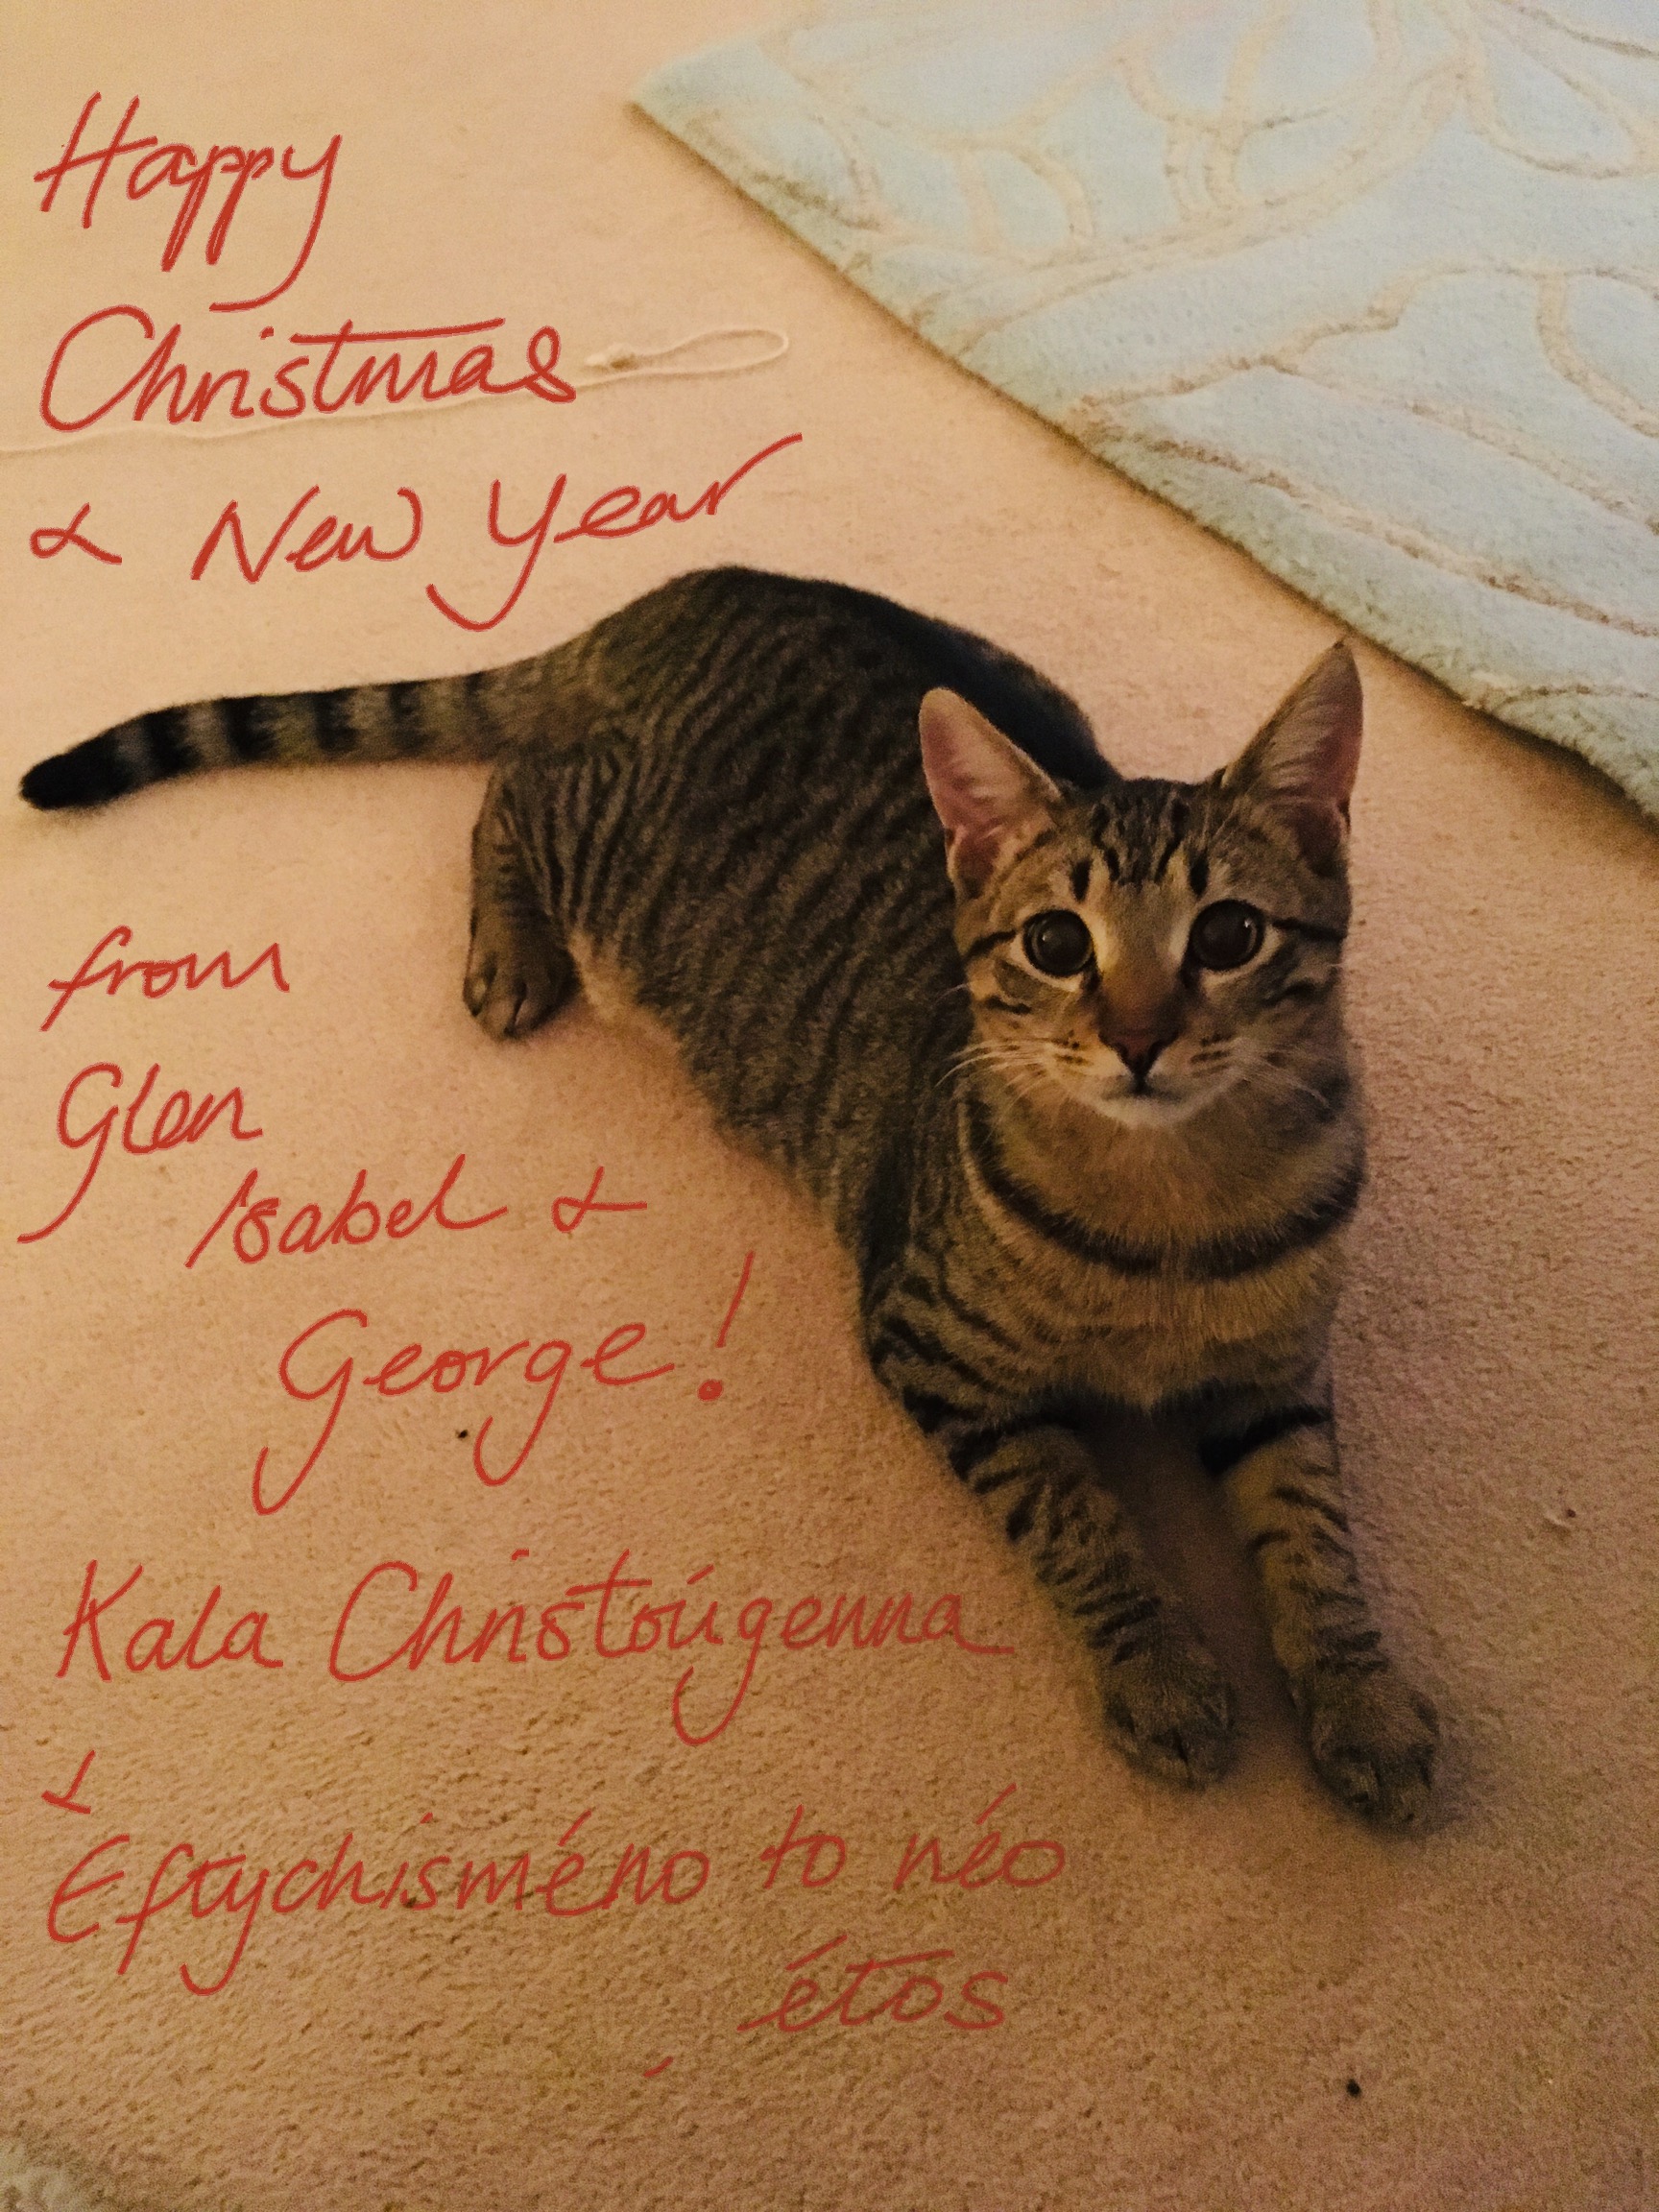 Happy
Christmas
& New Year
from
Glen
Isabel &
George!
Kala Christoúgenna
&
Eftychisméno to néo
étos